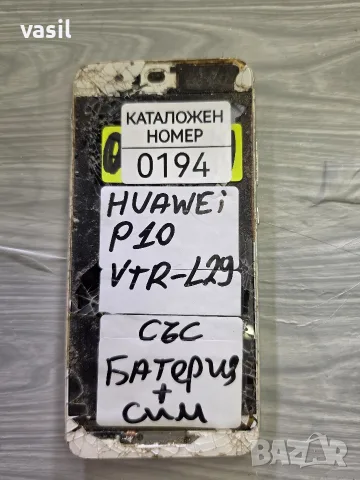 vasil
КАТАЛОЖЕН
НОМЕР
0194
HUAWEi
P10
VTR-L29
със
БАТЕРИЯ
+
сим
BAZAR